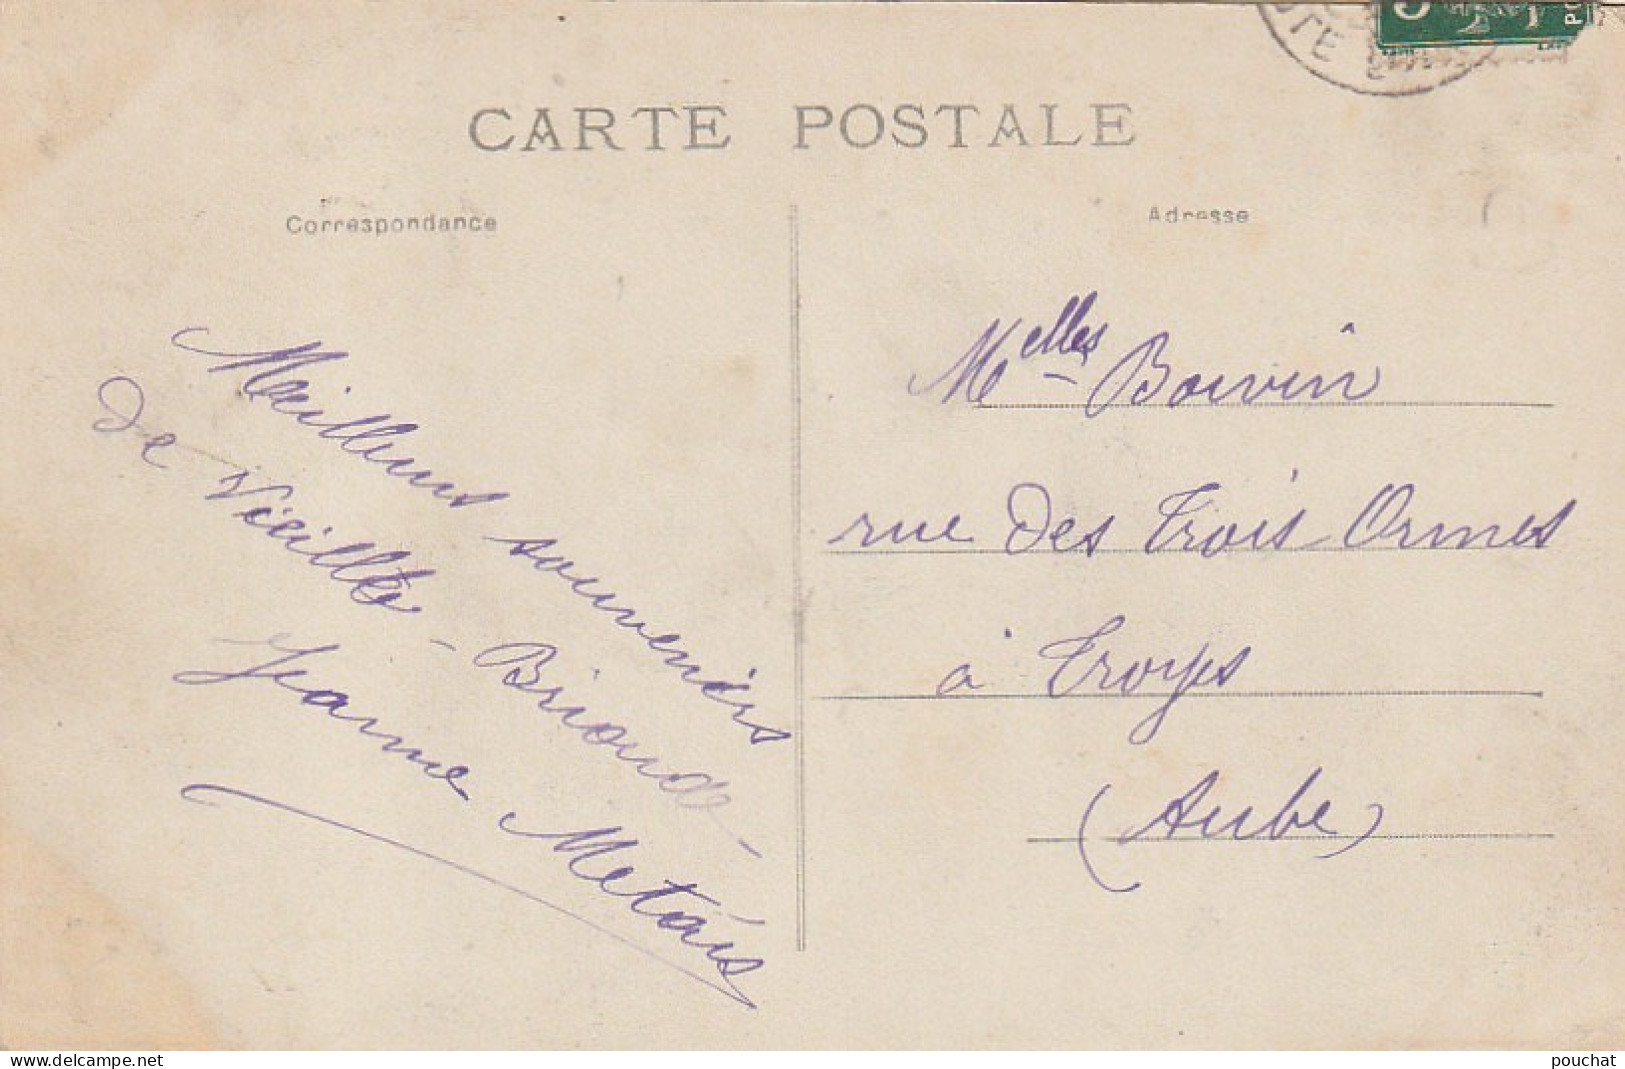 CARTE POSTALE
Correspondance
Adresse
Meilleurs souvenirs
de Vieille-Brioude
Jeanne Metais
Melles Boivin
rue des Trois Ormes
à Troyes
(Aube)
delcampe.net
pouchat